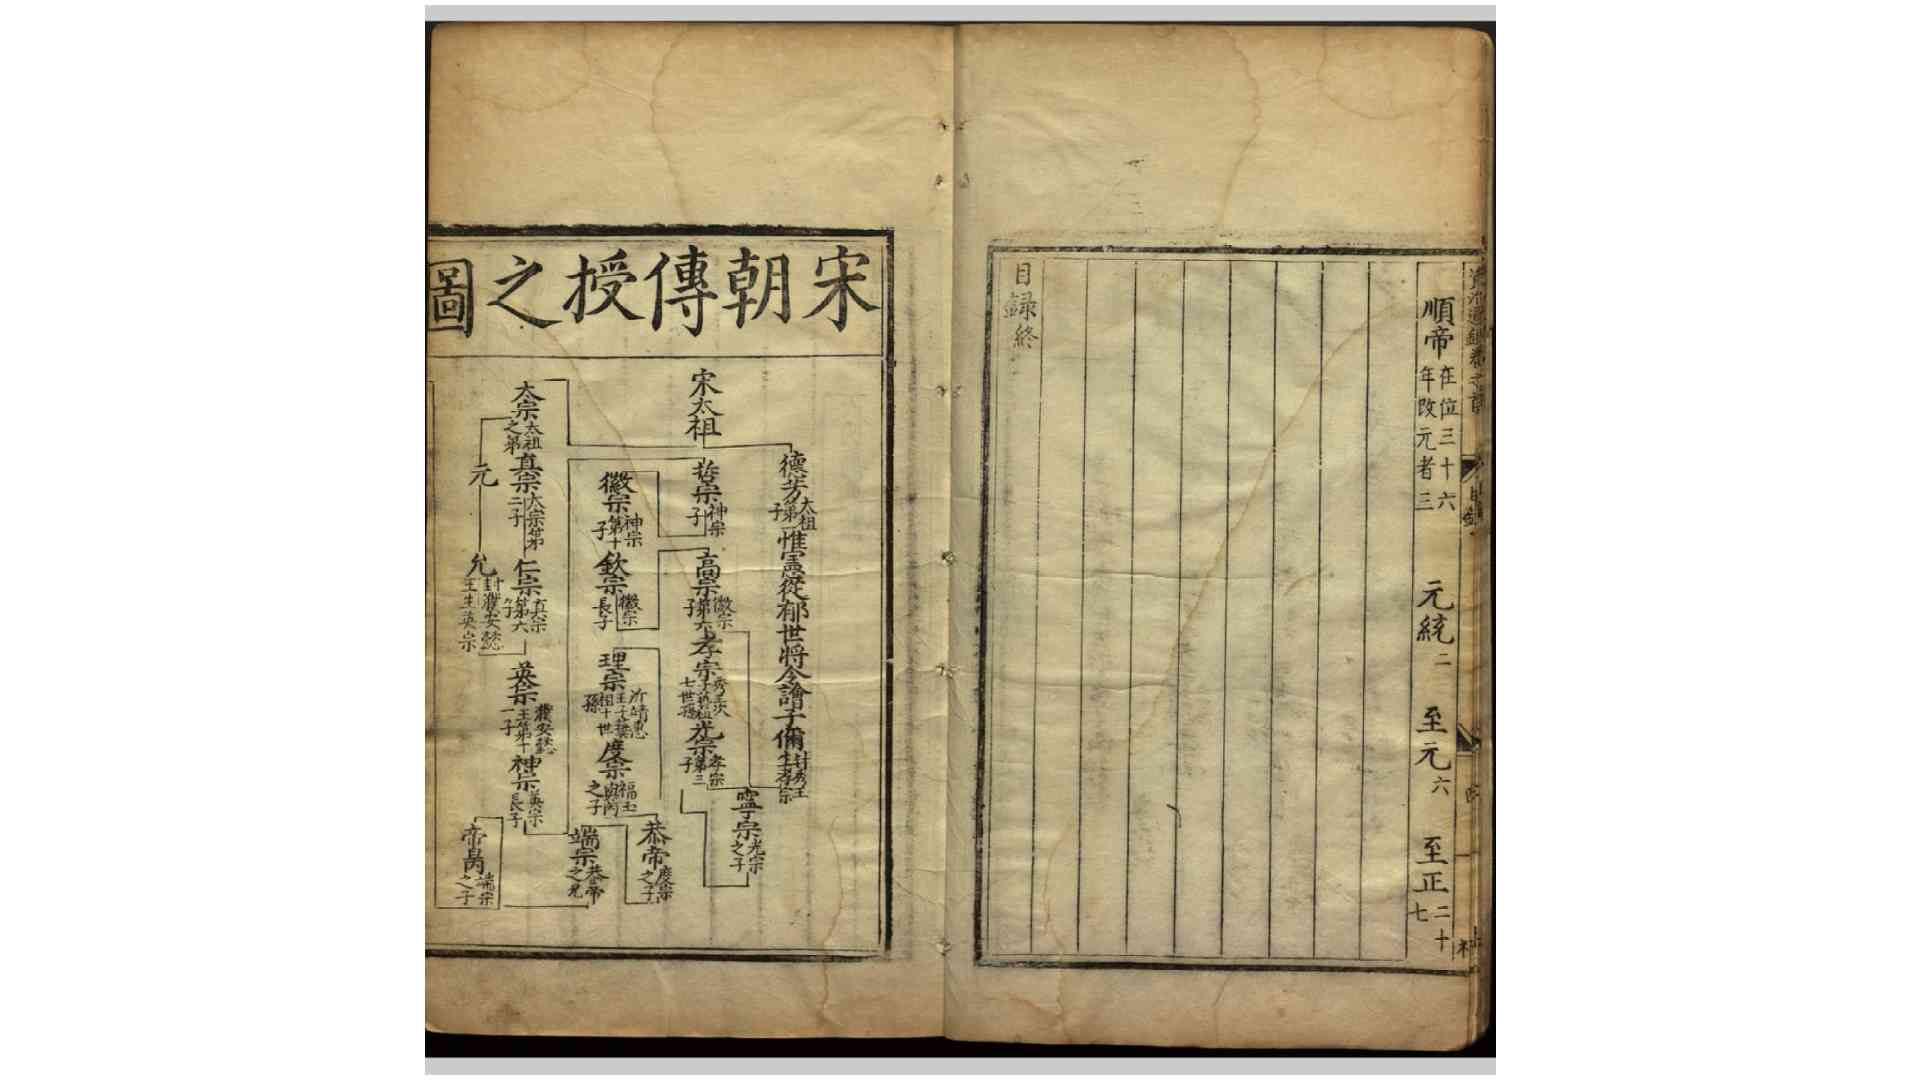 順帝
在位三十六
年改元者三
元統二
至元六
至正二十
七
目録終
宋朝傳授之圖
宋太祖
德芳
太祖
第
子
惟憲從郁世將令譮子偁
封秀王
生孝宗
哲宗
神宗
子
高宗
徽宗
第六
子
孝宗
光宗
孝宗
第三
子
寧宗
光宗
之子
徽宗
神宗
第十
子
欽宗
徽宗
長子
理宗
度宗
福王
與芮
之子
恭帝
度宗
之子
端宗
恭帝
之兄
太宗
太祖
之弟
真宗
太宗第
三子
仁宗
真宗
第六
子
英宗
濮安懿
王第十
一子
神宗
英宗
長子
元
允
封濮安懿
王生英宗
帝昺
端宗
之子